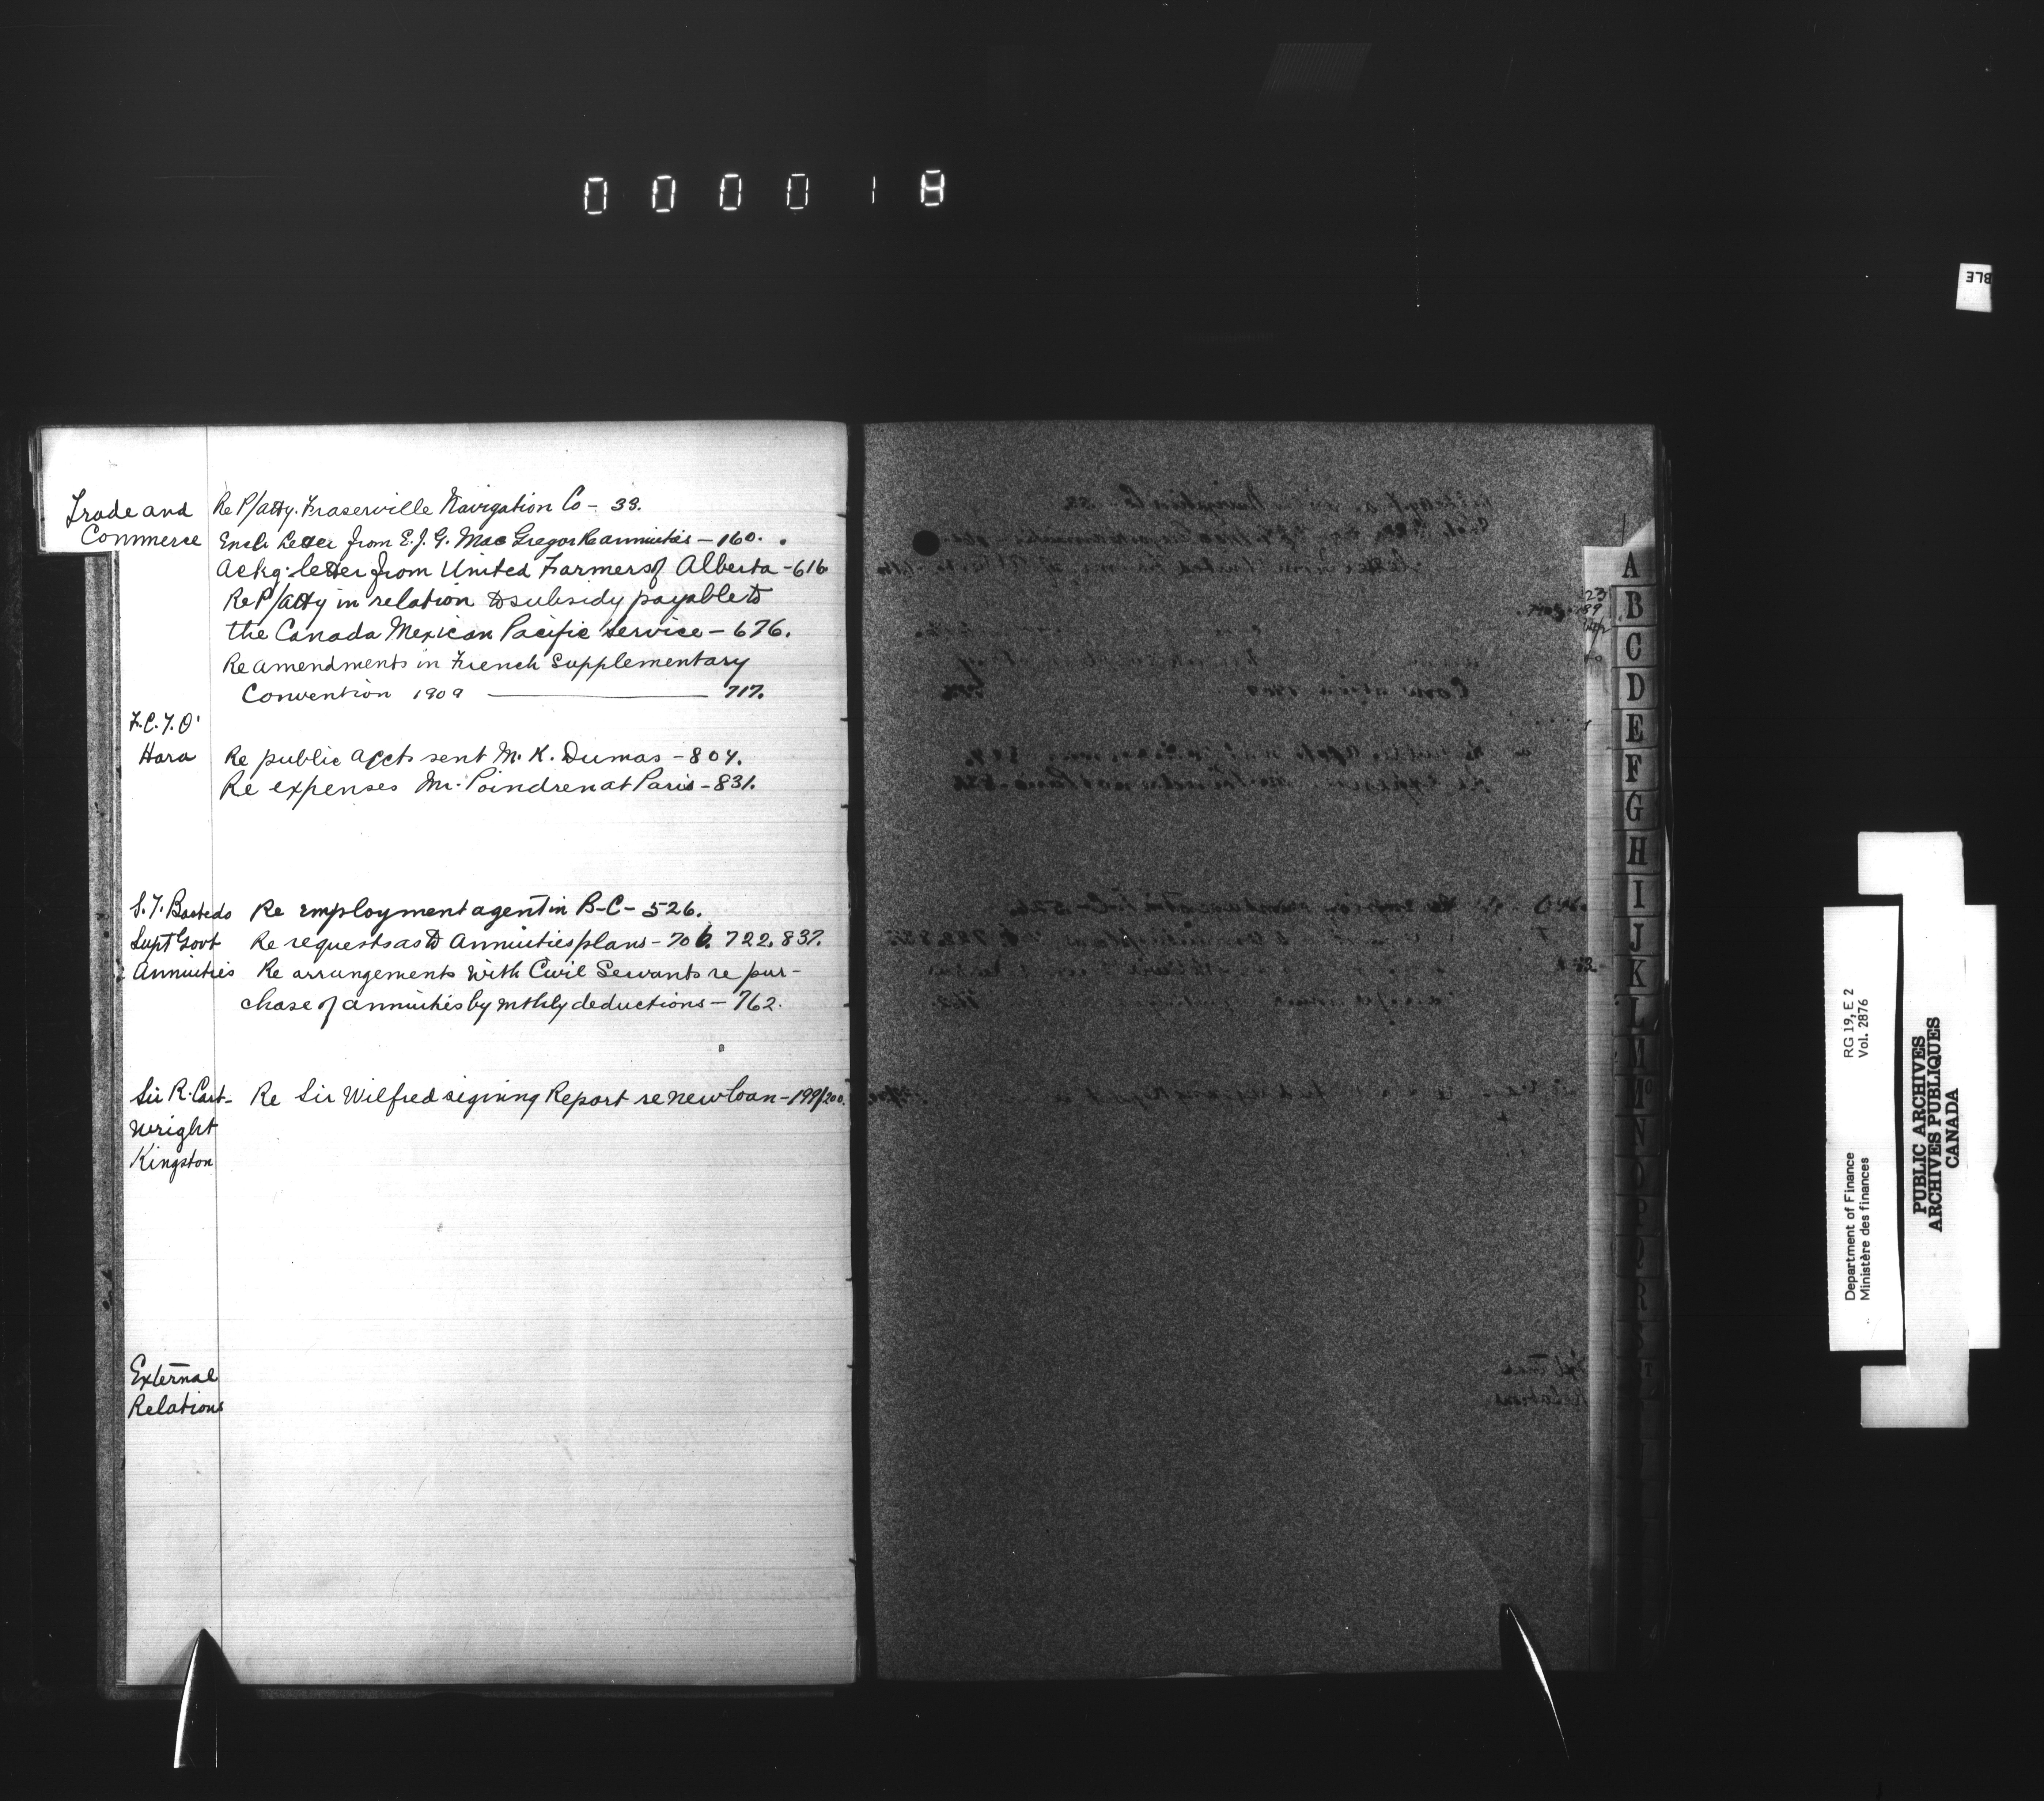 000018
BLE
Trade and Re P/atty. Fraserville Navigation Co - 33.
Commerce Encl: Letter from E. J. G. MacGregor Re annuities - 160.
Ackg. letter from United Farmers of Alberta - 616
Re P/atty in relation to subsidy payable to
the Canada Mexican Pacific Service - 676.
Re amendments in French Supplementary
Convention 1909 — 717.
F.C.T.O'
Hara Re public accts sent M. K. Dumas - 804.
Re expenses Mr. Poindren at Paris - 831.
S.T. Bastedo Re employment agent in B-C - 526.
Supt Govt Re requests as to Annuities plans - 706. 722. 837.
Annuities Re arrangements with Civil Servants re pur-
chase of annuities by mthly deductions - 762.
Sir R. Cart- Re Sir Wilfred signing Report re new loan - 199/200.
wright
Kingston
External
Relations
A
B
C
D
E
F
G
H
I
J
K
L
M
Mc
N
O
P
Q
R
S
T
RG 19, E 2
Vol. 2876
Department of Finance
Ministère des finances
PUBLIC ARCHIVES
ARCHIVES PUBLIQUES
CANADA